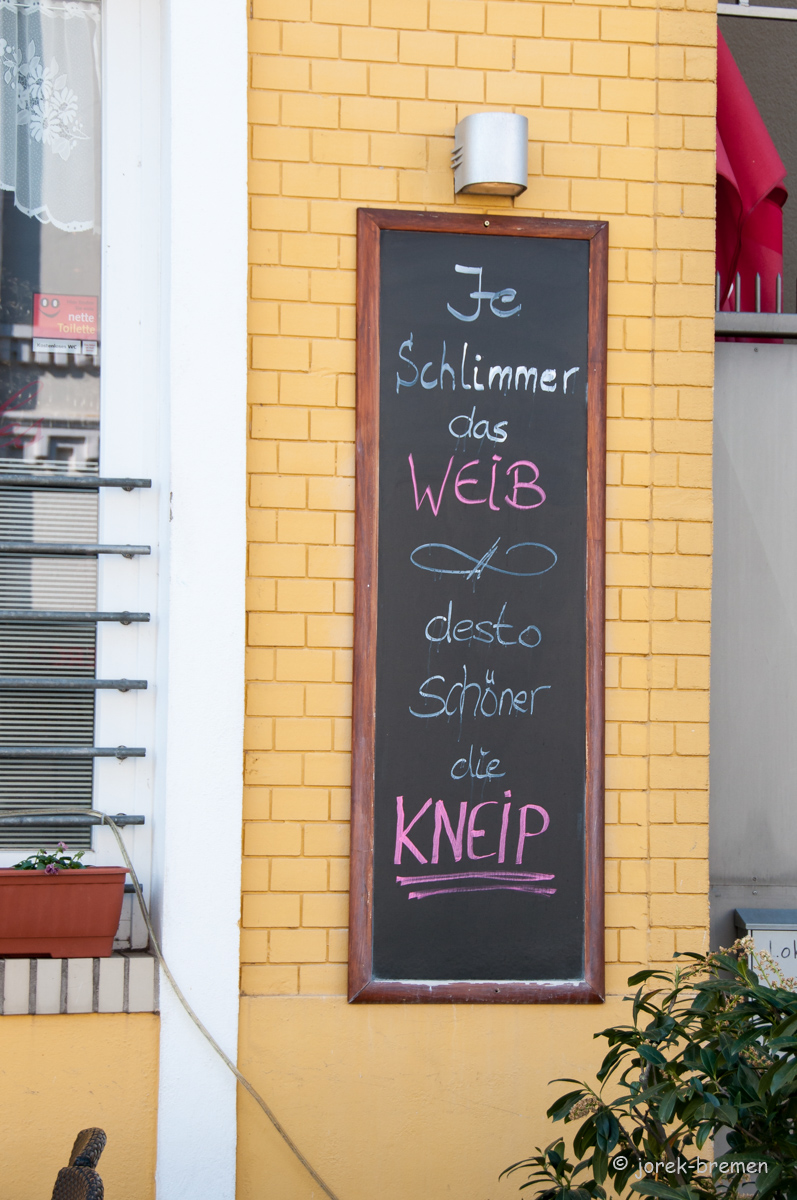 nette
Toilette
Je
Schlimmer
das
WEiB
desto
Schöner
die
KNEiP
© jorek-bremen